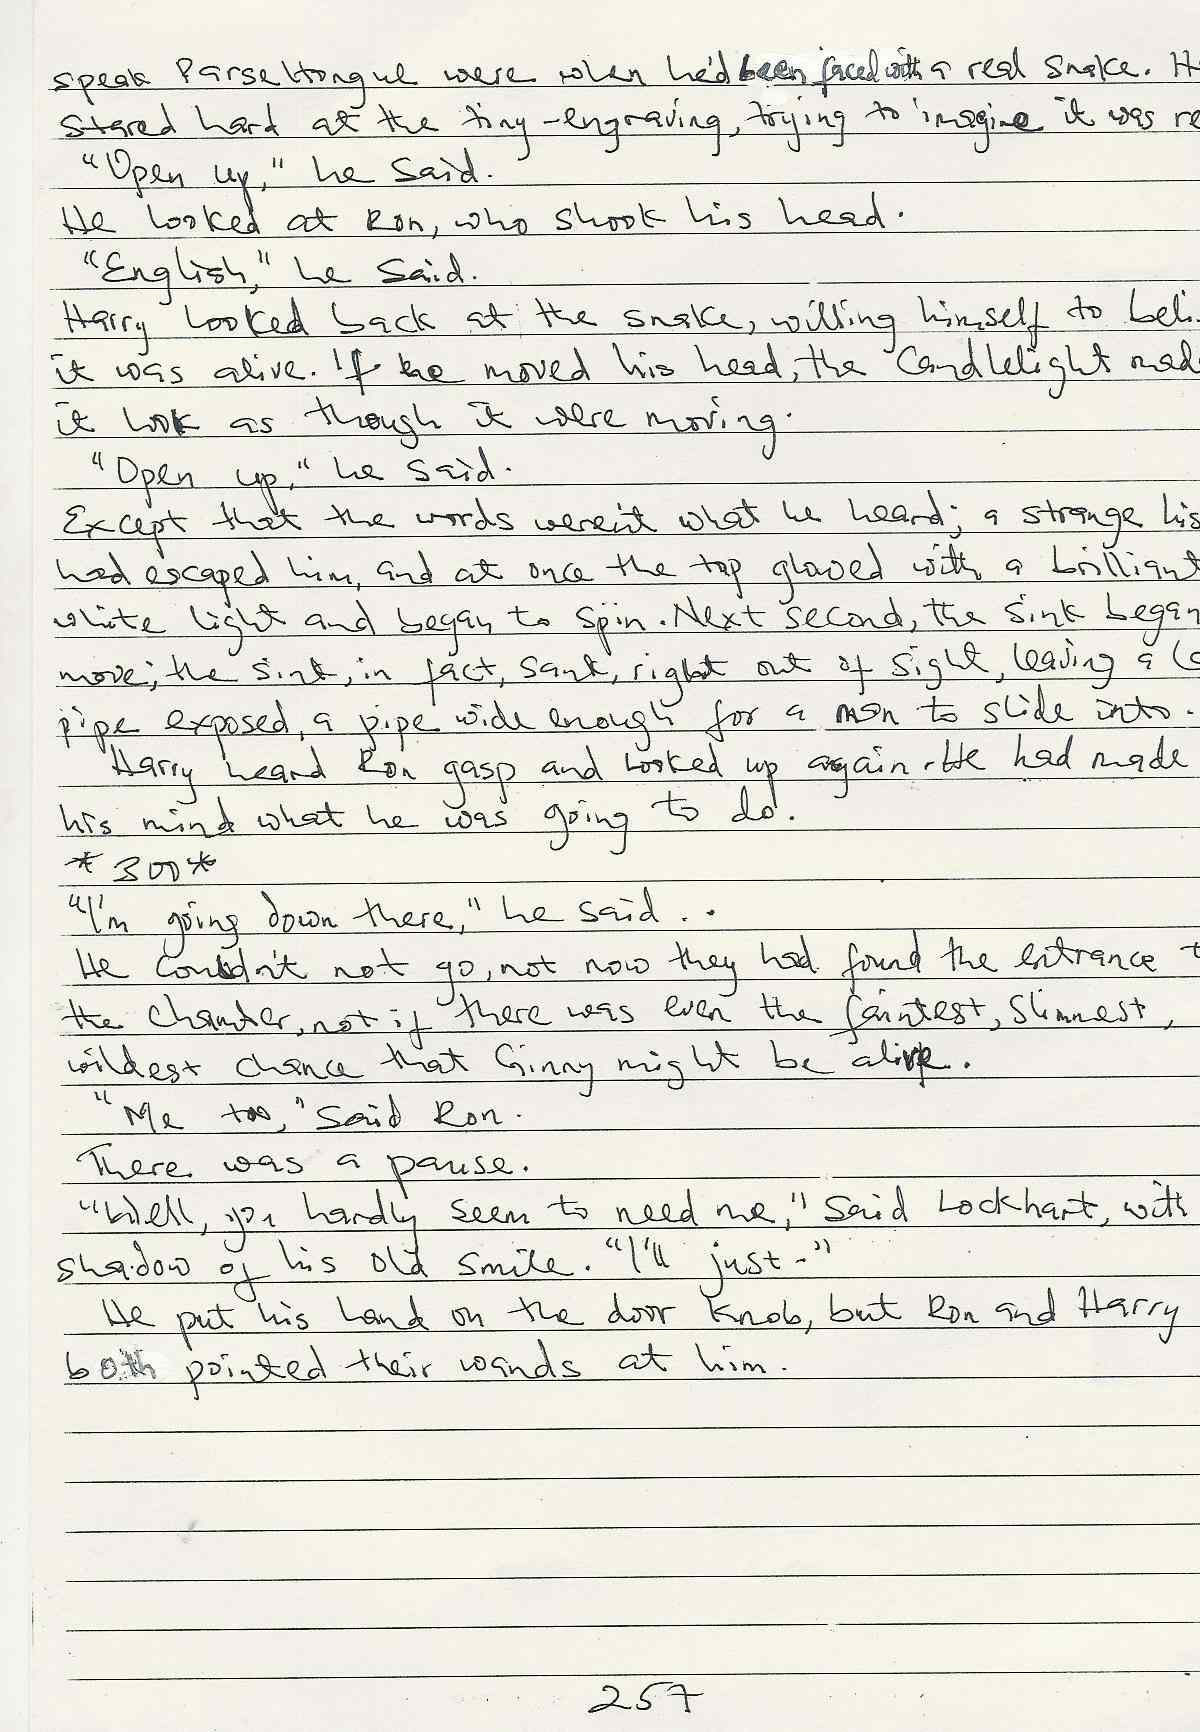 speak Parseltongue were when he'd been faced with a real snake. H
stared hard at the tiny-engraving, trying to imagine it was re
"Open up," he said.
He looked at Ron, who shook his head.
"English," he said.
Harry looked back at the snake, willing himself to beli
it was alive. If he moved his head, the candlelight made
it look as though it were moving.
"Open up," he said.
Except that the words weren't what he heard; a strange his
had escaped him, and at once the tap glowed with a brilliant
white light and began to spin. Next second, the sink began
move; the sink, in fact, sank, right out of sight, leaving a la
pipe exposed, a pipe wide enough for a man to slide into.
Harry heard Ron gasp and looked up again. He had made
his mind what he was going to do.
*300*
"I'm going down there," he said..
He couldn't not go, not now they had found the entrance t
the chamber, not if there was even the faintest, slimnest,
wildest chance that Ginny might be alive.
"Me too," said Ron.
There was a pause.
"Well, you hardly seem to need me," said Lockhart, with
shadow of his old smile. "I'll just-"
He put his hand on the door knob, but Ron and Harry
both pointed their wands at him.
257